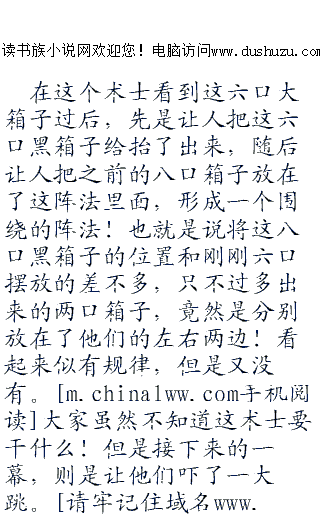 读书族小说网欢迎您！电脑访问www.dushuzu.com
在这个术士看到这六口大
箱子过后，先是让人把这六
口黑箱子给抬了出来，随后
让人把之前的八口箱子放在
了这阵法里面，形成一个围
绕的阵法！也就是说将这八
口黑箱子的位置和刚刚六口
摆放的差不多，只不过多出
来的两口箱子，竟然是分别
放在了他们的左右两边！看
起来似有规律，但是又没
有。[m.chinalww.com手机阅
读]大家虽然不知道这术士要
干什么！但是接下来的一
幕，则是让他们吓了一大
跳。[请牢记住域名www.